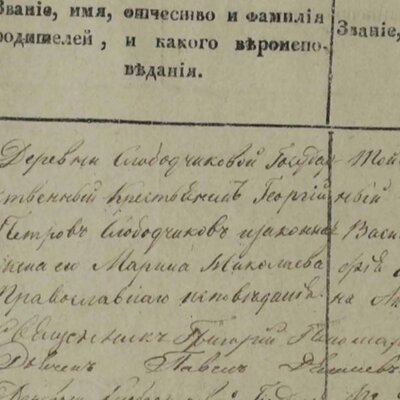 Званіе, имя, отчество и фамилія
родителей, и какого вѣроиспо-
вѣданія.
Званіе,
Деревни Слободчиковой Государ Той
ственный крестьянинъ Георгій ный
Петровъ Слободчиковъ и законная Васи
жена его Марина Николаева
Православнаго исповѣданія на
Священникъ Григорій Пономар
Павелъ